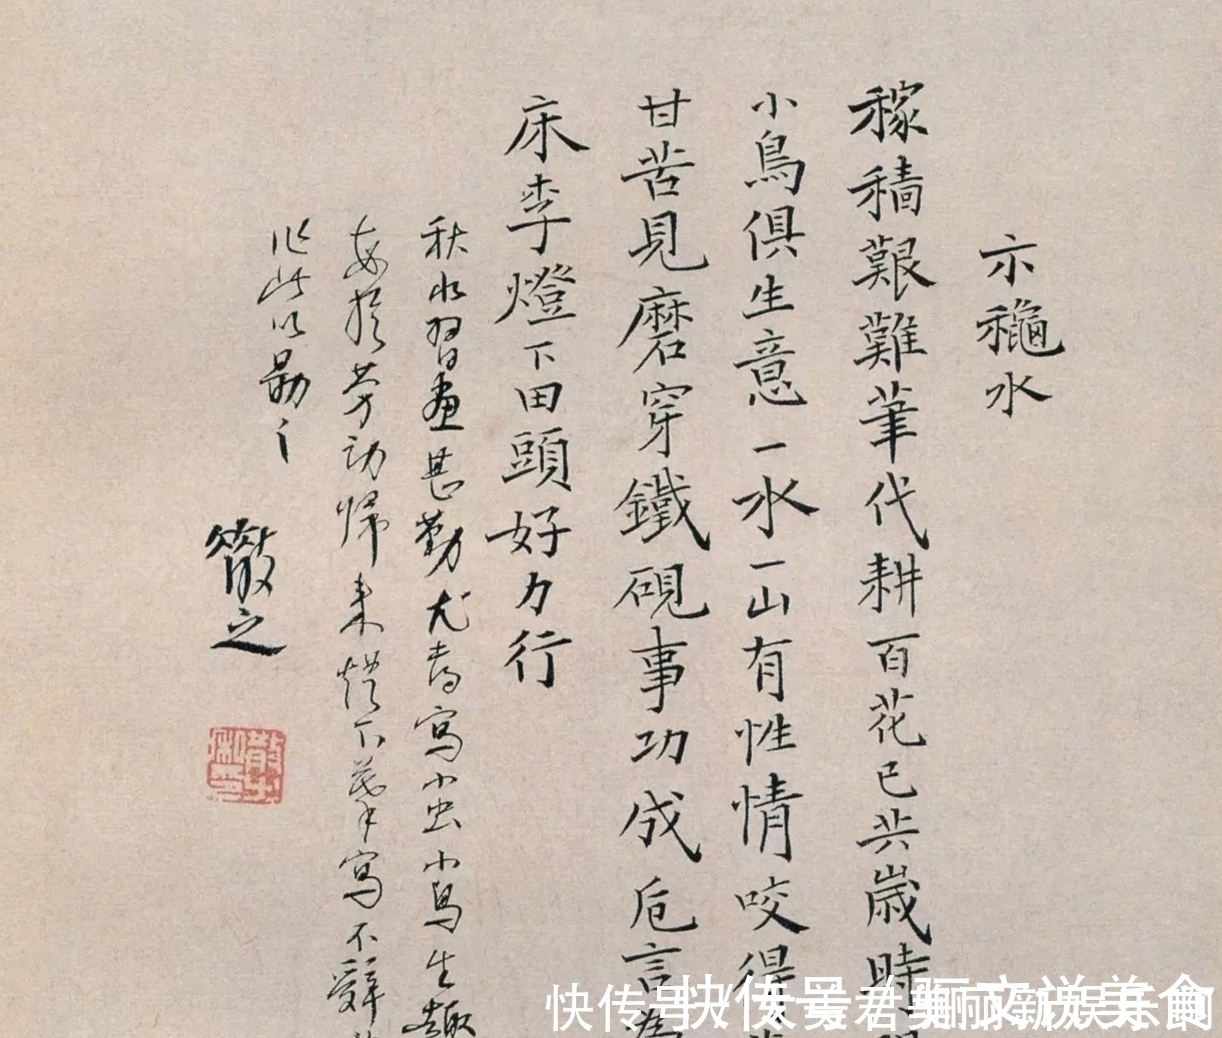 示龝水
稼穡艱難筆代耕百花已共歲時
小鳥俱生意一水一山有性情咬得
甘苦見磨穿鐵硯事功成卮言為
床李燈下田頭好力行
秋水習畫甚勤尤喜寫小虫小鳥生趣
每於勞動歸來燈下篝寫不辭
作此以勗之
散之
快传号/